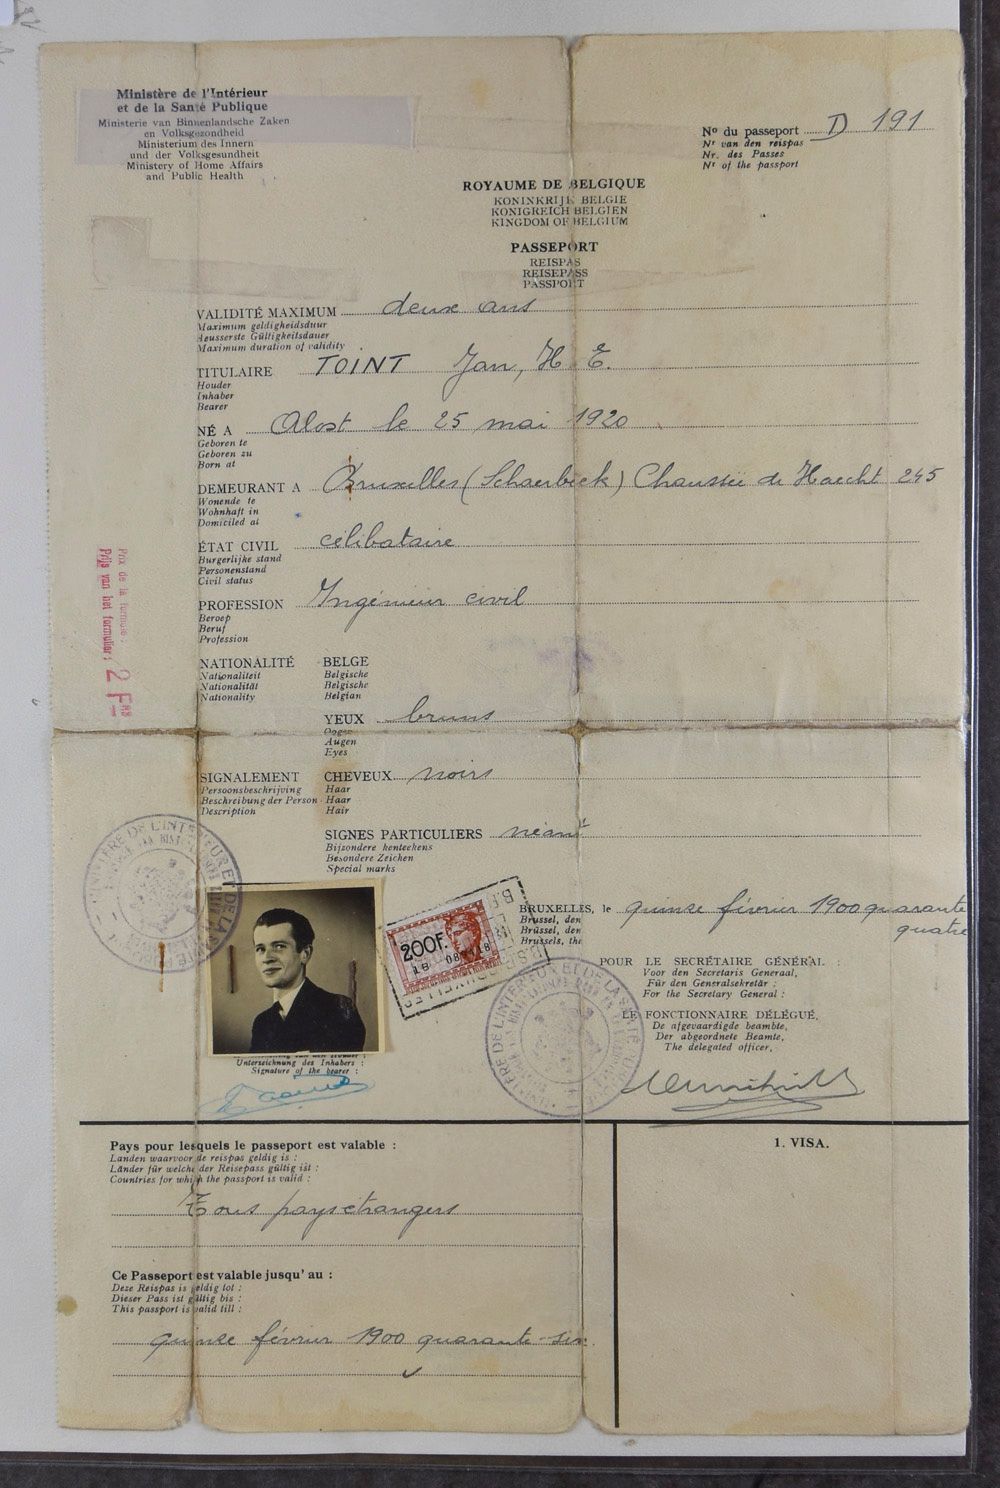 Ministère de l'Intérieur
et de la Santé Publique
Ministerie van Binnenlandsche Zaken
en Volksgezondheid
Ministerium des Innern
und der Volksgesundheit
Ministery of Home Affairs
and Public Health
No du passeport D 191
Nr van den reispas
Nr. des Passes
Nr of the passport
ROYAUME DE BELGIQUE
KONINKRIJK BELGIE
KONIGREICH BELGIEN
KINGDOM OF BELGIUM
PASSEPORT
REISPAS
REISEPASS
PASSPORT
VALIDITÉ MAXIMUM deux ans
Maximum geldigheidsduur
Aeusserste Gültigkeitsdauer
Maximum duration of validity
TITULAIRE TOINT Jan, H E.
Houder
Inhaber
Bearer
NÉ A Alost le 25 mai 1920
Geboren te
Geboren zu
Born at
DEMEURANT A Bruxelles (Schaerbeek) Chaussée de Haecht 245
Wonende te
Wohnhaft in
Domiciled at
ÉTAT CIVIL célibataire
Burgerlijke stand
Personenstand
Civil status
PROFESSION Ingénieur civil
Beroep
Beruf
Profession
NATIONALITÉ BELGE
Nationaliteit Belgische
Nationalität Belgische
Nationality Belgian
YEUX bruns
Oogen
Augen
Eyes
SIGNALEMENT CHEVEUX noirs
Persoonsbeschrijving Haar
Beschreibung der Person Haar
Description Hair
SIGNES PARTICULIERS néant
Bijzondere kenteekens
Besondere Zeichen
Special marks
Prix de la formule :
Prijs van het formulier : 2 Frs
200F.
18 08 18
BRUXELLES, le quinze février 1900 quarante
quatre
Brussel, den
Brüssel, den
Brussels, the
POUR LE SECRÉTAIRE GÉNÉRAL :
Voor den Secretaris Generaal,
Für den Generalsekretär :
For the Secretary General :
LE FONCTIONNAIRE DÉLÉGUÉ,
De afgevaardigde beambte,
Der abgeordnete Beamte,
The delegated officer,
Unterzeichnung des Inhabers :
Signature of the bearer :
Pays pour lesquels le passeport est valable :
Landen waarvoor de reispas geldig is :
Länder für welche der Reisepass gültig ist :
Countries for which the passport is valid :
Tous pays étrangers
1. VISA.
Ce Passeport est valable jusqu' au :
Deze Reispas is geldig tot :
Dieser Pass ist gültig bis :
This passport is valid till :
quinze février 1900 quarante-six